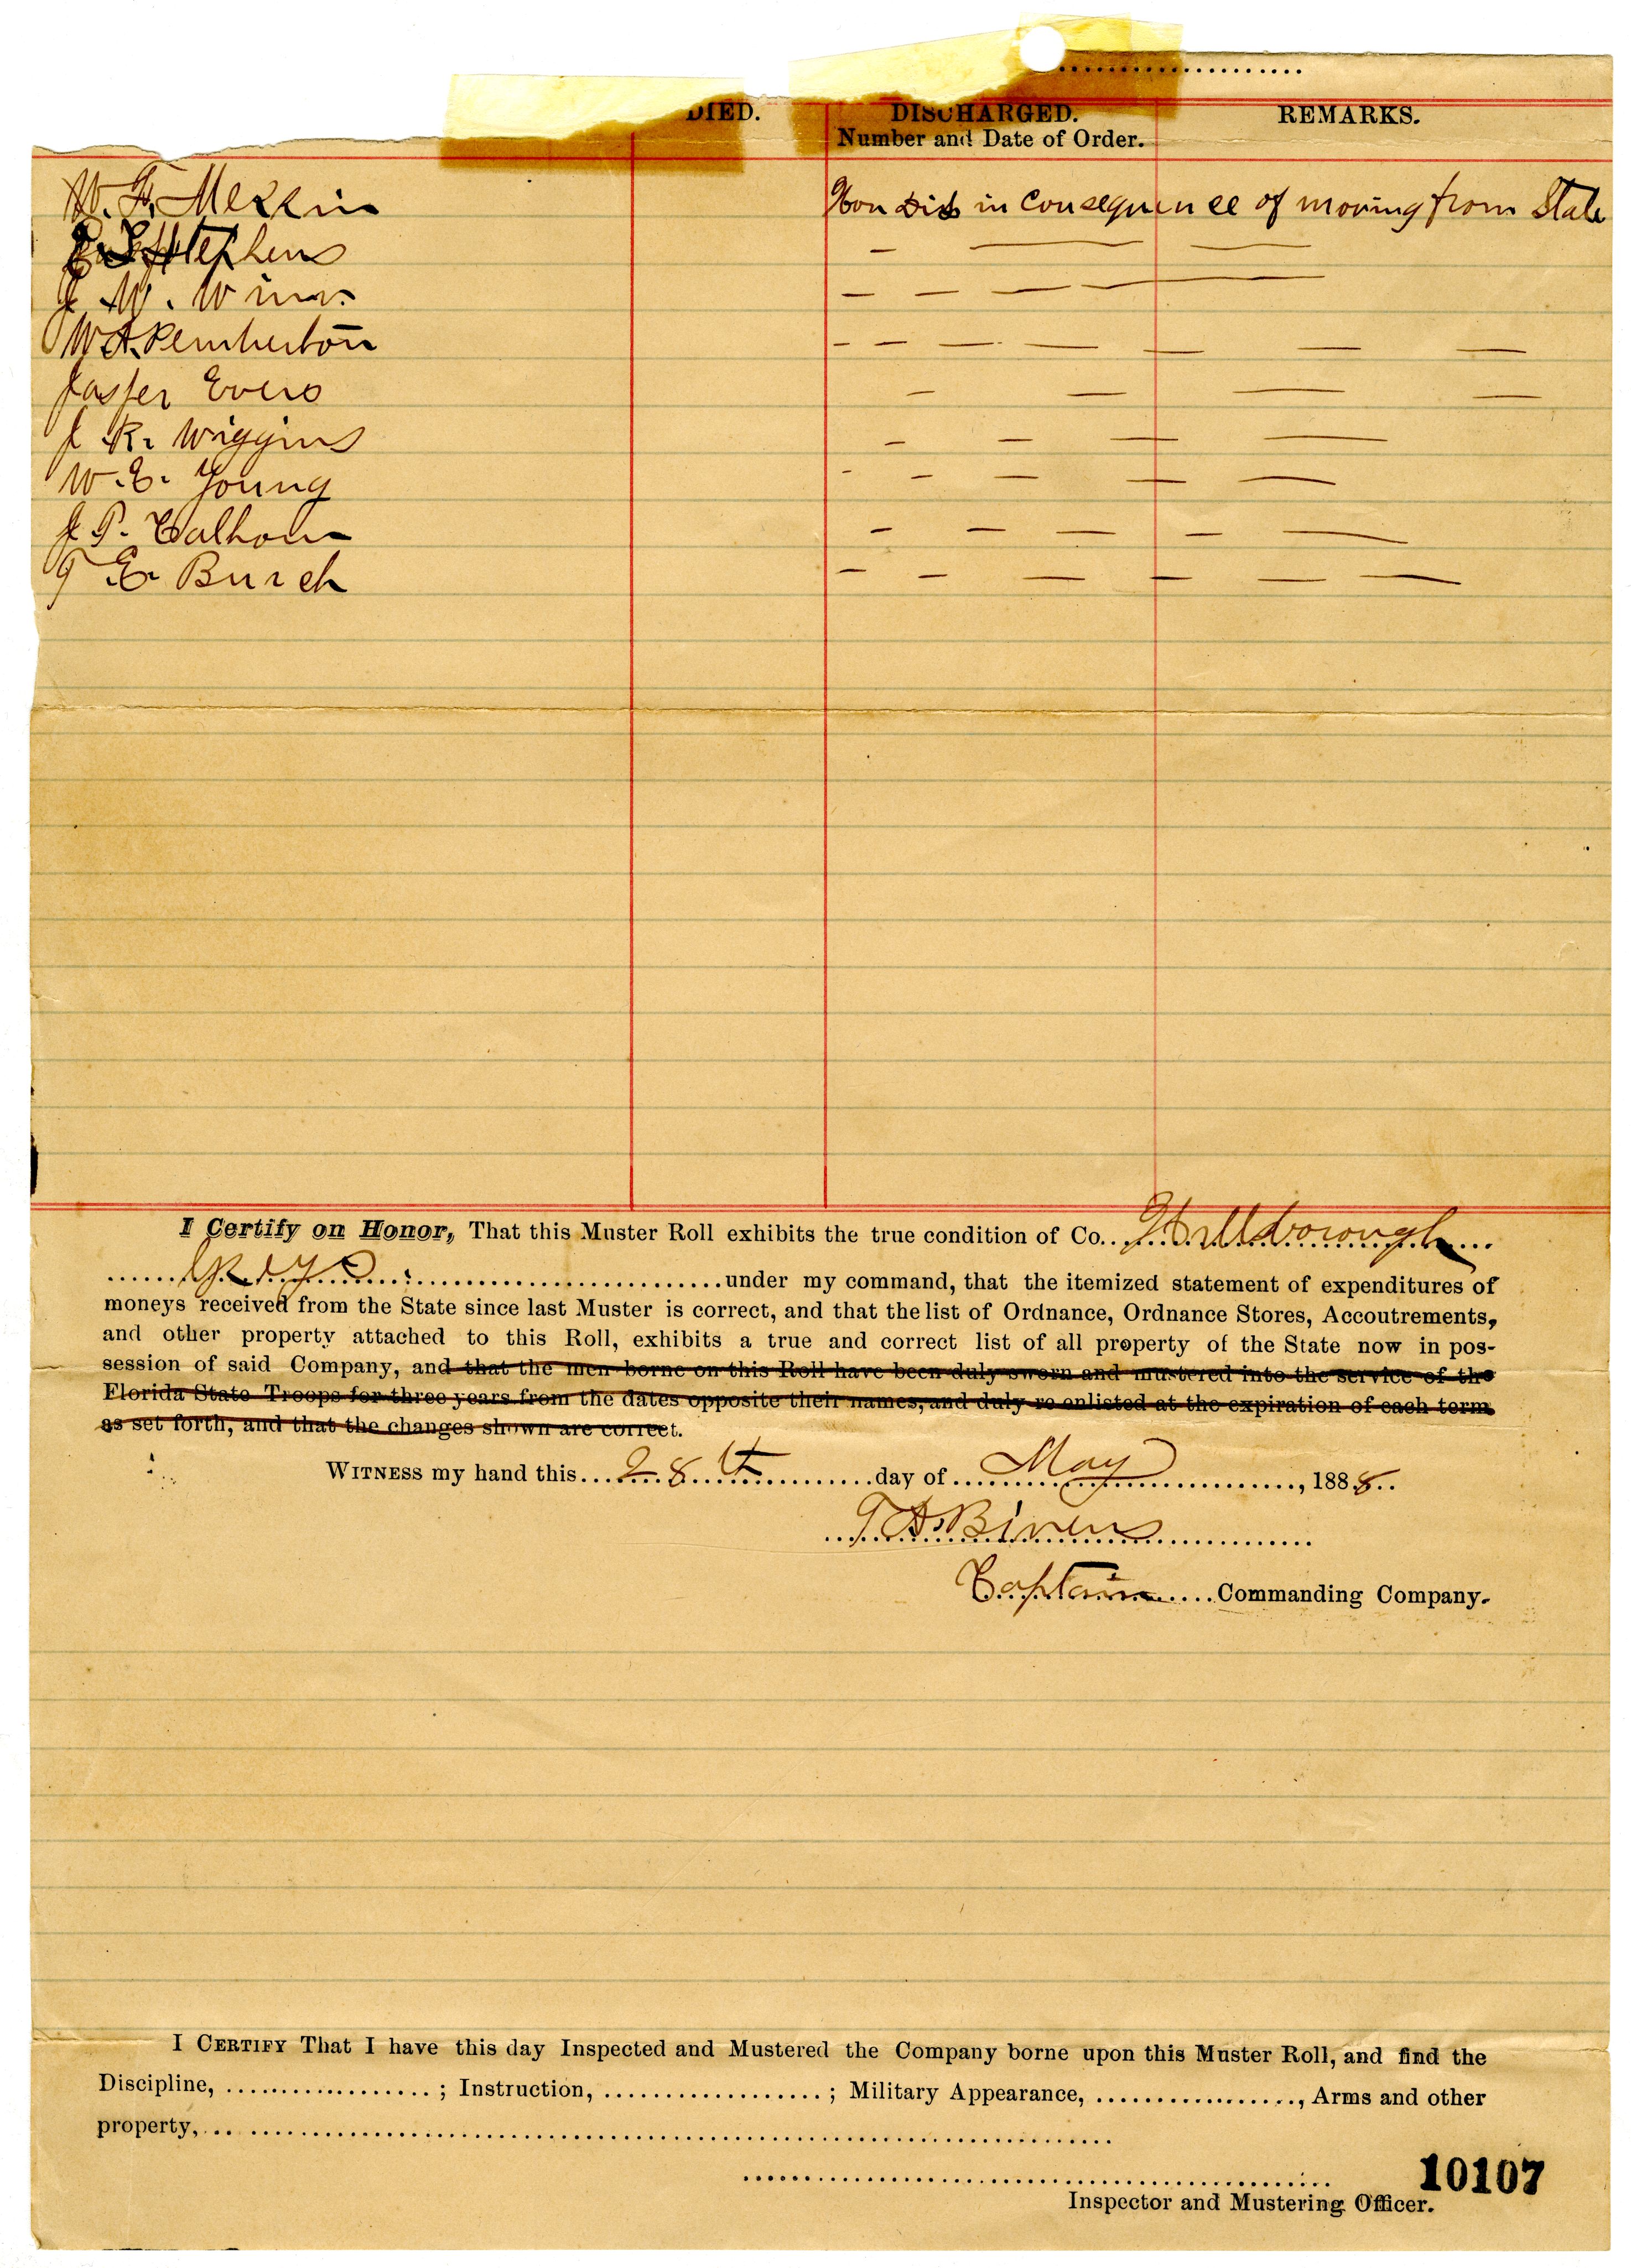 DIED.
DISCHARGED.
Number and Date of Order.
REMARKS.
W. F. Merrin
Hon Dis in Consequence of moving from State
Stephens
J. W. Winn
W A. Pemberton
Jasper Evers
J R. Wiggins
W. E. Young
J P. Calhoun
T E. Burch
I Certify on Honor, That this Muster Roll exhibits the true condition of Co. Hillsborough
under my command, that the itemized statement of expenditures of
moneys received from the State since last Muster is correct, and that the list of Ordnance, Ordnance Stores, Accoutrements,
and other property attached to this Roll, exhibits a true and correct list of all property of the State now in pos-
session of said Company, and that the men borne on this Roll have been duly sworn and mustered into the service of the
Florida State Troops for three years from the dates opposite their names, and duly re enlisted at the expiration of each term
as set forth, and that the changes shown are correct.
WITNESS my hand this 28th day of May, 1888
T A. Bivens
Captain Commanding Company.
I CERTIFY That I have this day Inspected and Mustered the Company borne upon this Muster Roll, and find the
Discipline, ; Instruction, ; Military Appearance, , Arms and other
property,
10107
Inspector and Mustering Officer.